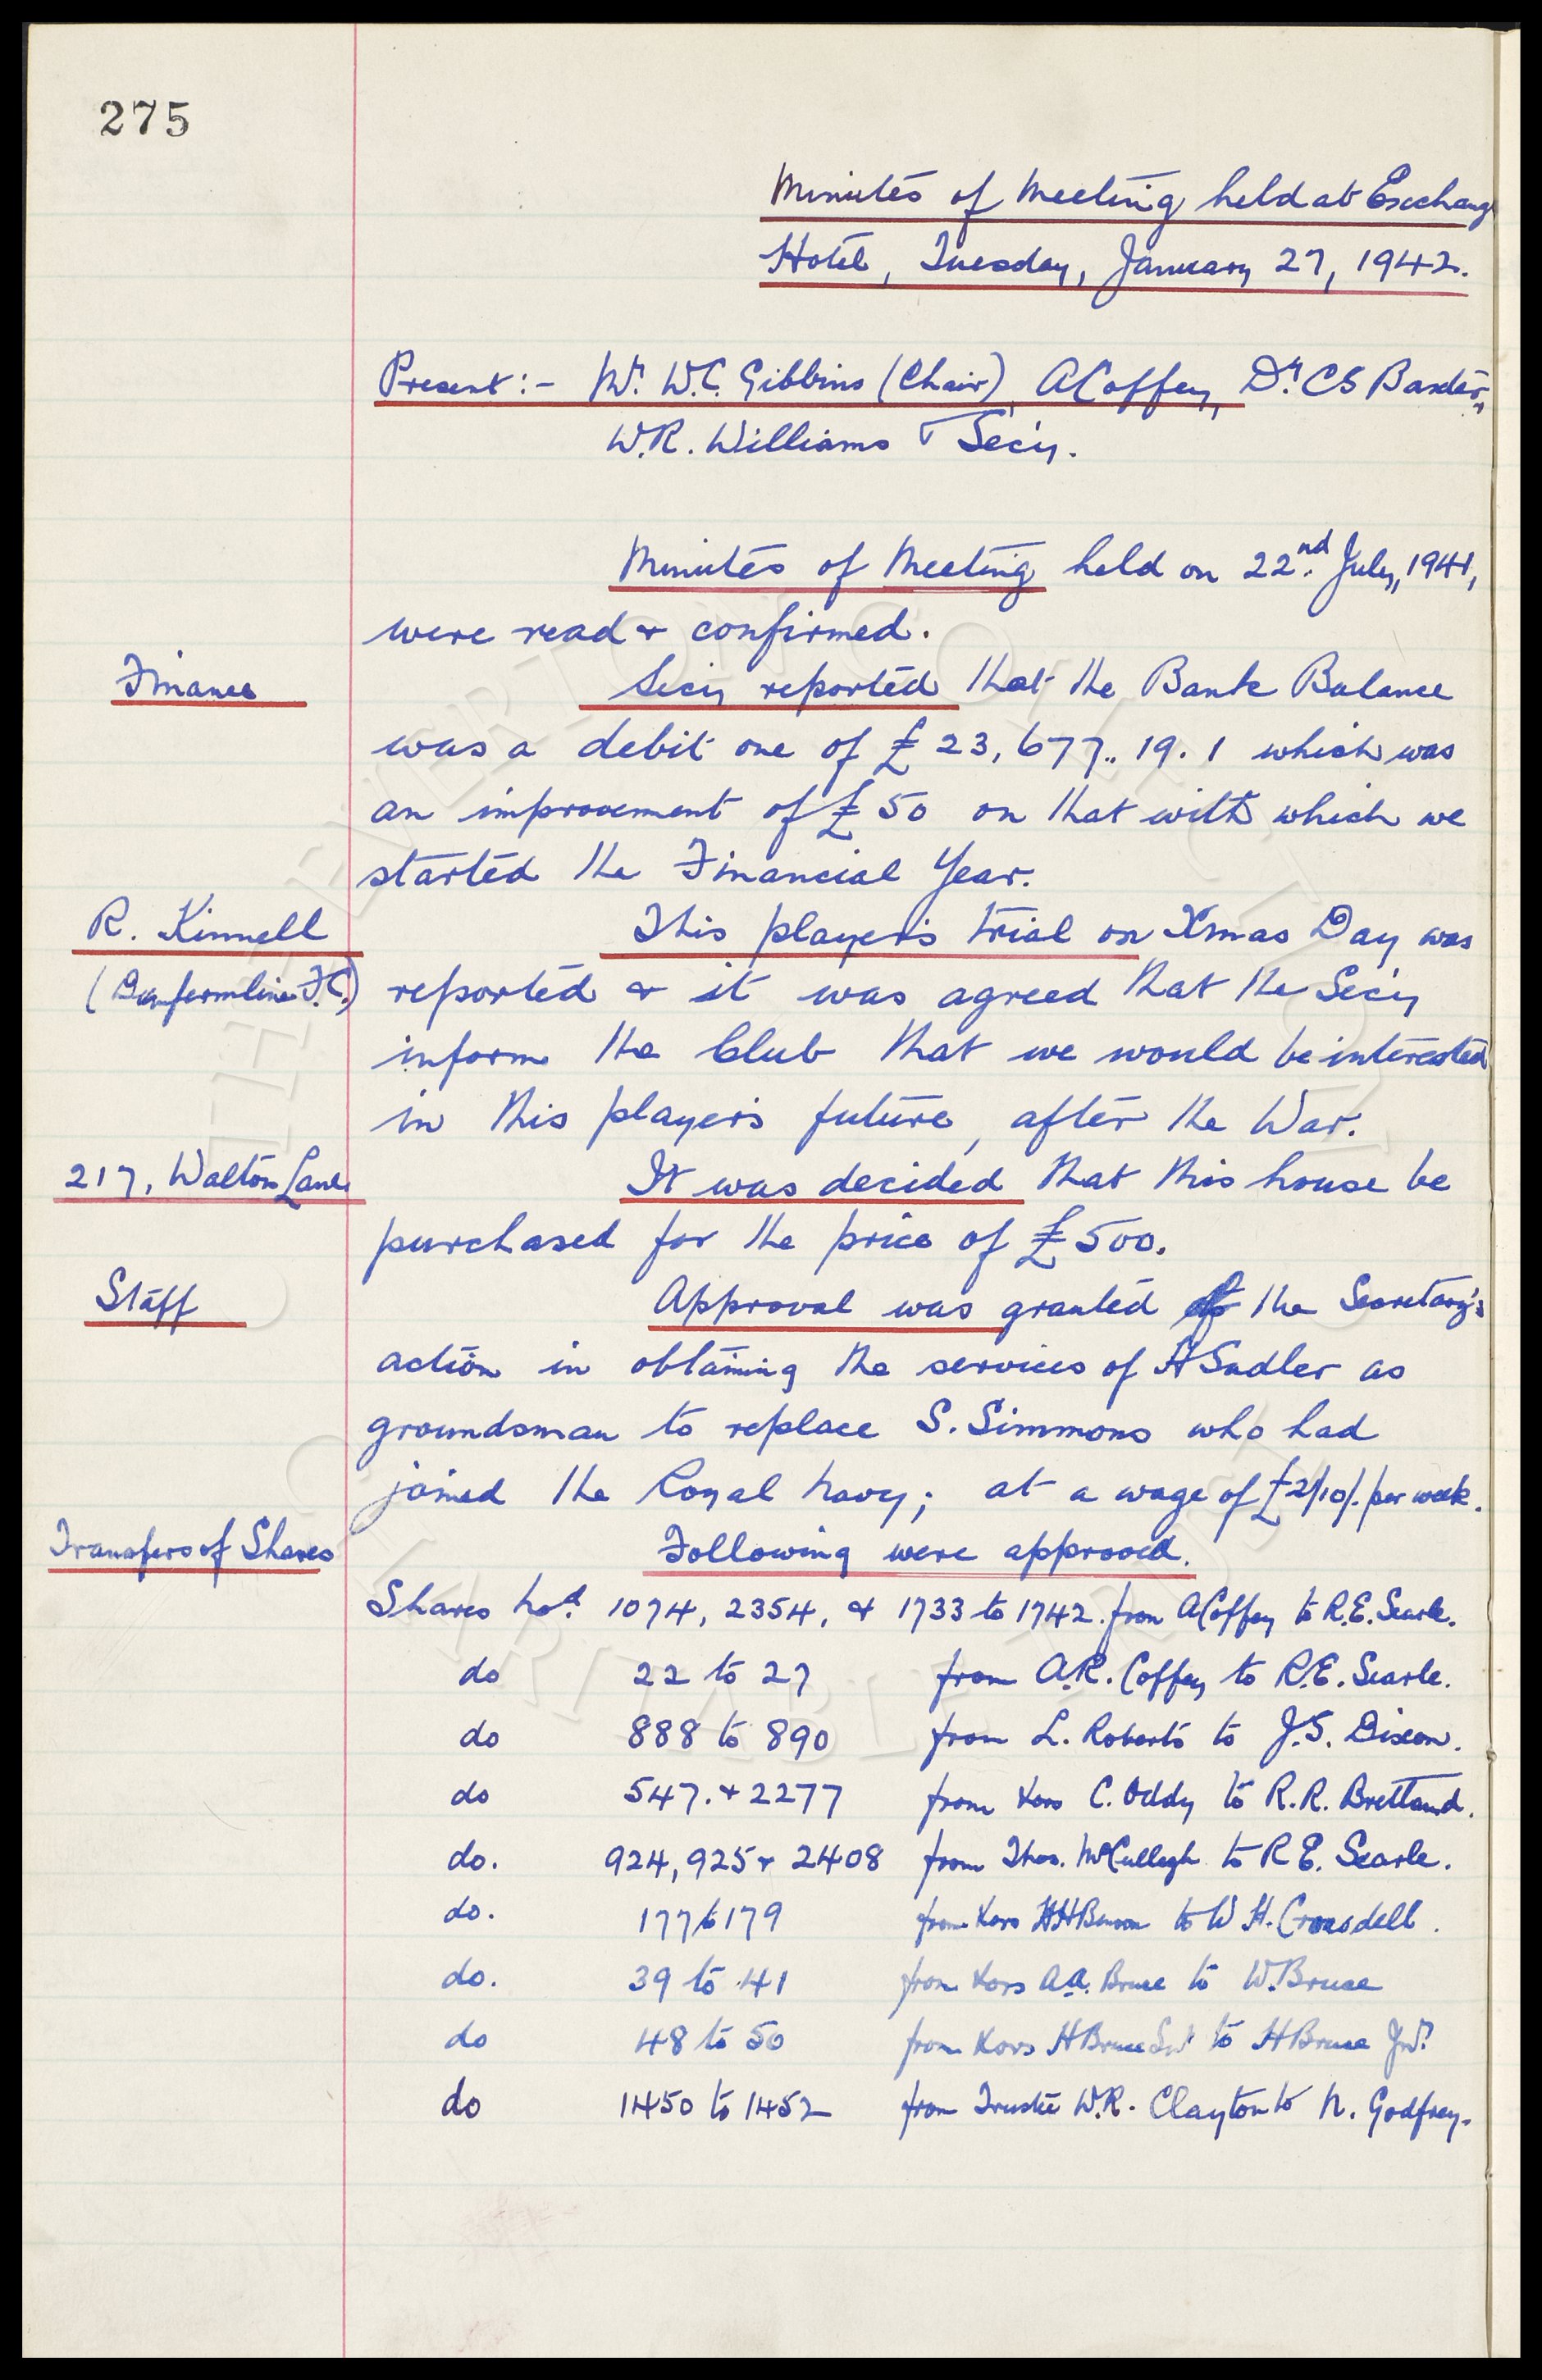 275
Minutes of Meeting held at Exchange
Hotel, Tuesday, January 27, 1942.
Present:- Mr. W.C. Gibbins (Chair), A Coffey, Dr. C S Baxter,
W.R. Williams & Sec'y.
Minutes of Meeting held on 22nd July, 1941,
were read & confirmed.
Finance
Secy reported that the Bank Balance
was a debit one of £23,677..19.1 which was
an improvement of £50 on that with which we
started the Financial Year.
R. Kinnell
(Dunfermline F.C.)
This player's trial on Xmas Day was
reported & it was agreed that the Sec'y
inform the Club that we would be interested
in this player's future, after the War.
217, Walton Lane
It was decided that this house be
purchased for the price of £500.
Staff
Approval was granted of the Secretary's
action in obtaining the services of H Sadler as
groundsman to replace S. Simmons who had
joined the Royal Navy; at a wage of £2/10/- per week.
Transfers of Shares
Following were approved.
Shares Nos. 1074, 2354, & 1733 to 1742 from A Coffey to R.E. Searle.
do 22 to 27 from A.R. Coffey to R.E. Searle.
do 888 to 890 from L. Roberts to J.S. Dixon.
do 547. & 2277 from Xors C. Oddy to R.R. Brettand.
do. 924, 925 & 2408 from Thos. McCullagh to R E. Searle.
do. 177 to 179 from Xors H H Benson to W H. Croasdell.
do. 39 to 41 from Xors A A. Bruce to W. Bruce
do 48 to 50 from Xors H Bruce Snr to H Bruce Jnr.
do 1450 to 1452 from Trustee W.R. Clayton to N. Godfrey.
THE EVERTON COLLECTION
CHARITABLE TRUST